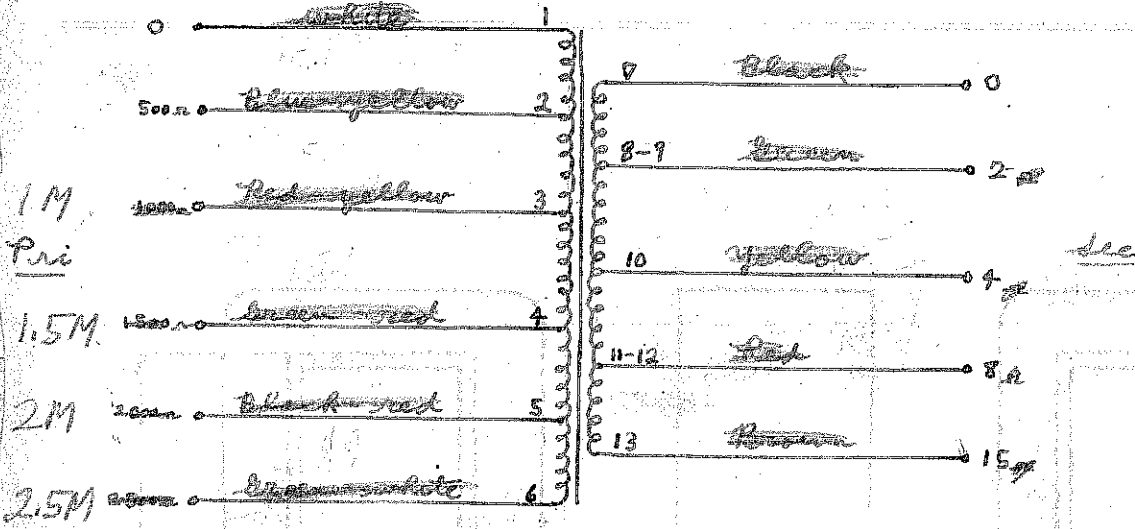 0 White 1
500Ω Blue-yellow 2
1M Red-yellow 3
Pri
1.5M 1500Ω Green-red 4
2M 2000Ω Black-red 5
2.5M 6
7 Black 0
8-9 Green 2
10 Yellow 4
Sec
11-12 Red 8Ω
13 Brown 15